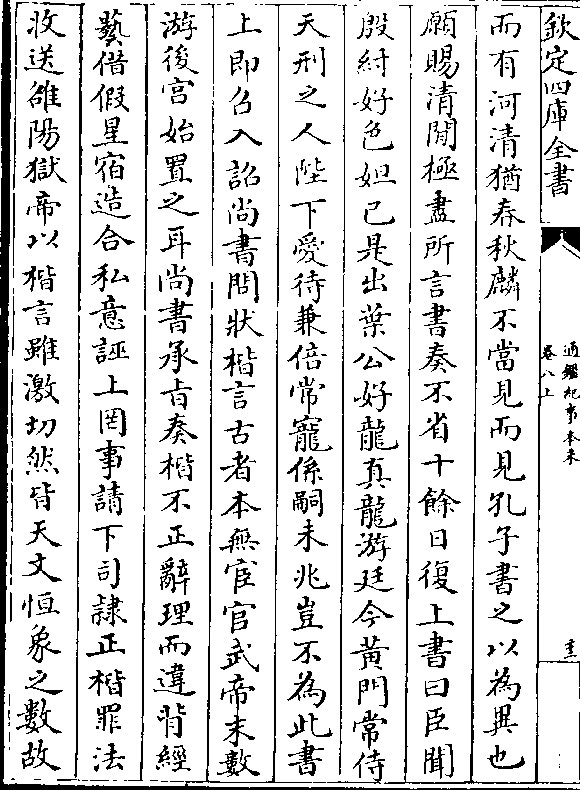 欽定四庫全書
通鑑紀事本末
卷八上
而有河清猶春秋麟不當見而見孔子書之以為異也
願賜清閒極盡所言書奏不省十餘日復上書曰臣聞
殷紂好色妲己是出葉公好龍真龍游廷今黃門常侍
天刑之人陛下愛待兼倍常寵係嗣未兆豈不為此書
上即召入詔尚書問狀楷言古者本無宦官武帝末數
游後宫始置之耳尚書承旨奏楷不正辭理而違背經
藝借假星宿造合私意誣上罔事請下司隷正楷罪法
收送雒陽獄帝以楷言雖激切然皆天文恒象之數故